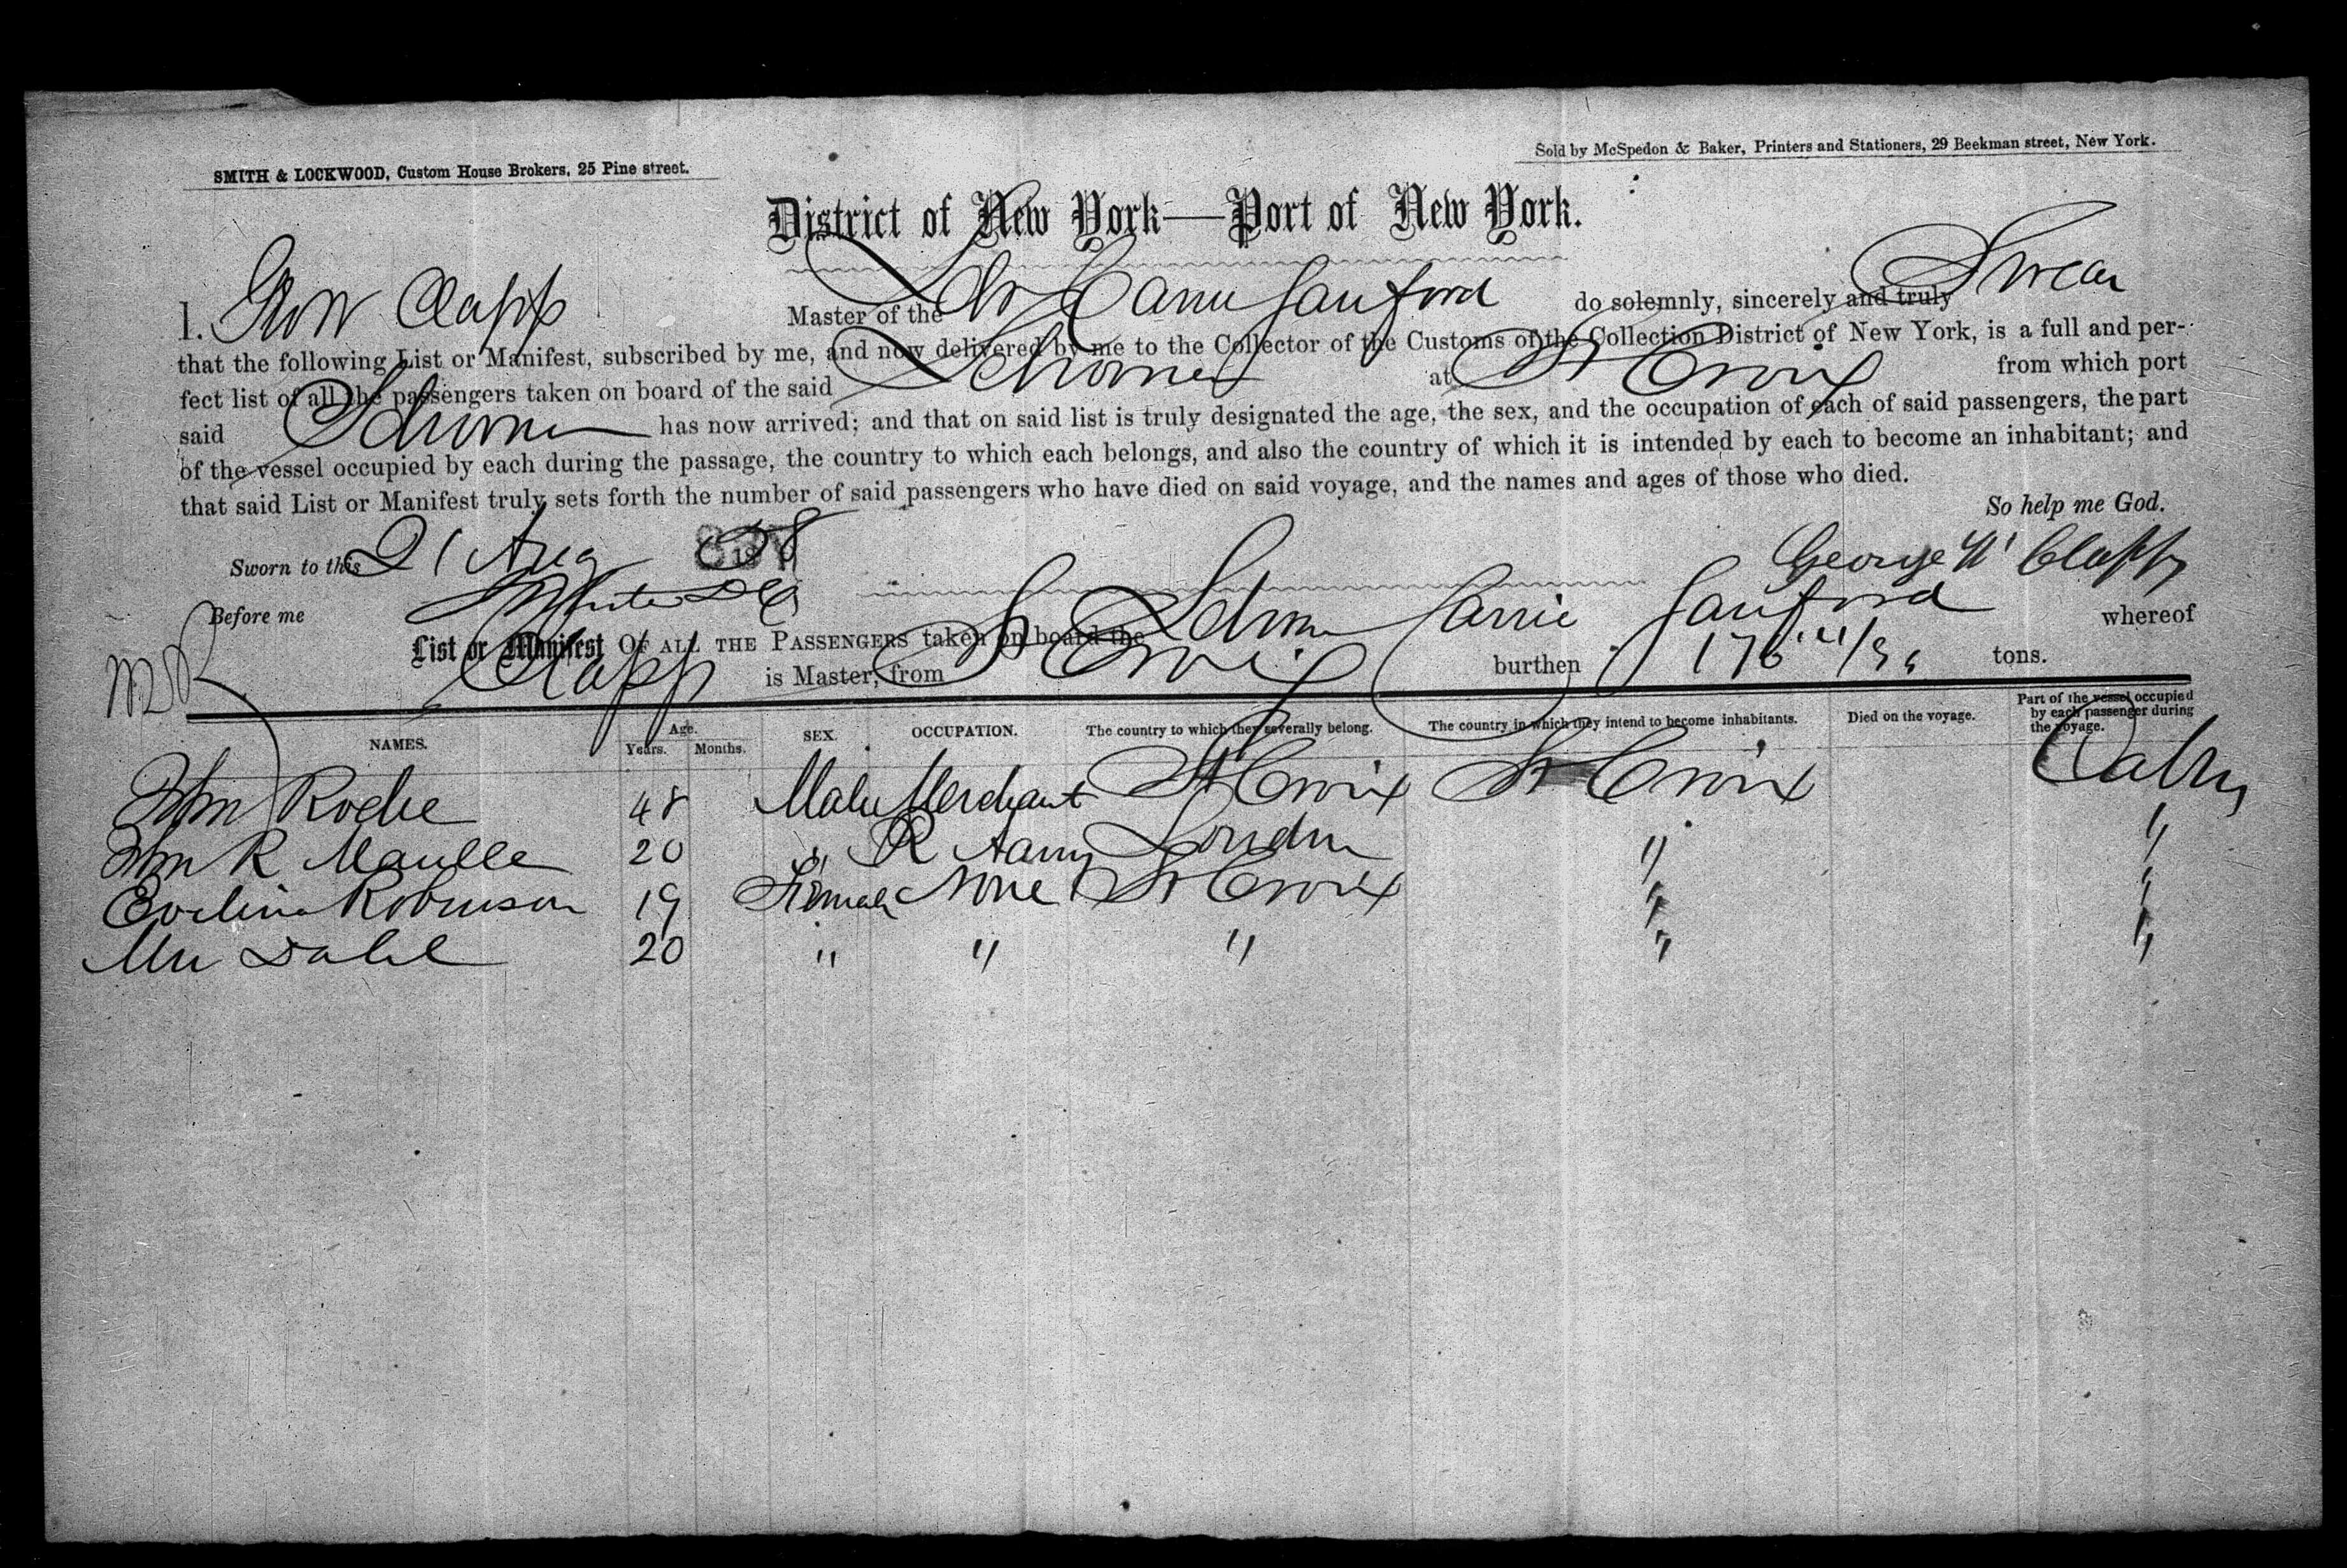 SMITH & LOCKWOOD, Custom House Brokers, 25 Pine street.
Sold by McSpedon & Baker, Printers and Stationers, 29 Beekman street, New York.
District of New York—Port of New York.
I. Geo W Clapp Master of the Schr Carrie Sanford do solemnly, sincerely and truly Swear
that the following List or Manifest, subscribed by me, and now delivered by me to the Collector of the Customs of the Collection District of New York, is a full and per-
fect list of all the passengers taken on board of the said Schooner at St Croix from which port
said Schooner has now arrived; and that on said list is truly designated the age, the sex, and the occupation of each of said passengers, the part
of the vessel occupied by each during the passage, the country to which each belongs, and also the country of which it is intended by each to become an inhabitant; and
that said List or Manifest truly sets forth the number of said passengers who have died on said voyage, and the names and ages of those who died.
So help me God.
Sworn to this 21 Aug 1858
George W Clapp
Before me
List or Manifest OF ALL THE PASSENGERS taken on board the Schr Carrie Sanford whereof
Clapp is Master, from St Croix burthen 176 tons.
NAMES. Age. Years. Months. SEX. OCCUPATION. The country to which they severally belong. The country in which they intend to become inhabitants. Died on the voyage. Part of the vessel occupied by each passenger during the voyage.
Wm Roche 48 Male Merchant St Croix St Croix Cabin
Wm R Maulle 20 " R Army London " "
Evelina Robinson 19 Female None St Croix " "
Mrs Dahl 20 " " " " "